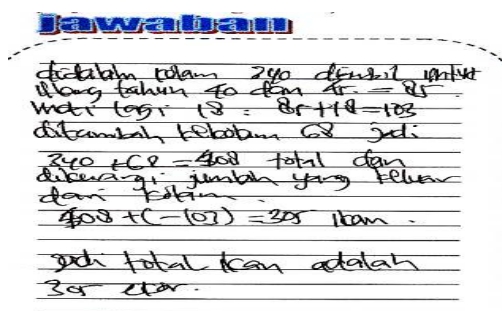 Jawaban
didalam kolam 240 diambil untuk
ulang tahun 40 dan 45 = 85
mati lagi 18 = 85+18=103
ditambah kekolam 68 jadi
240 + 68 = 408 total dan
dikurangi jumlah yang keluar
dari kolam
408 + (-103) = 305 ikan.
jadi total ikan adalah
305 ekor.